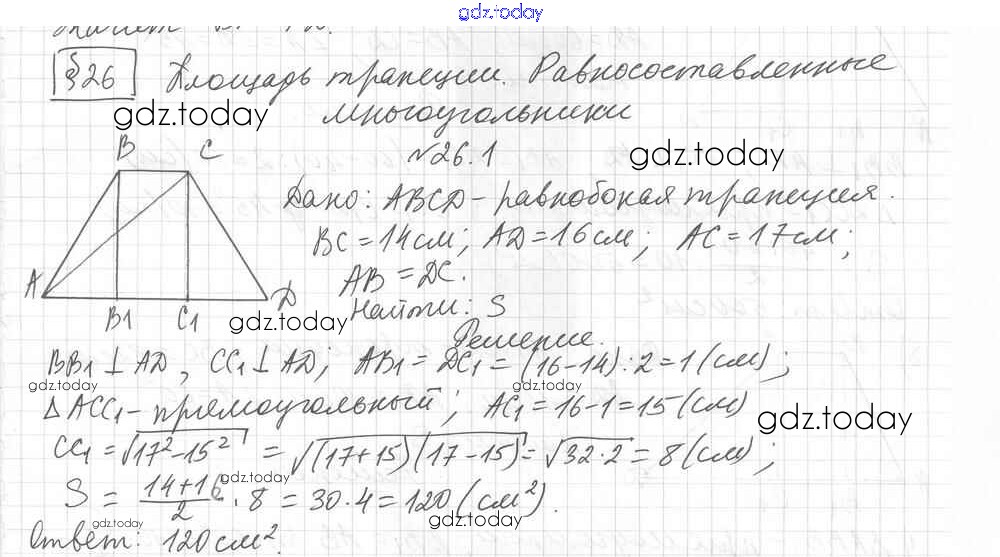 gdz.today
§26 Площадь трапеции. Равносоставленные
gdz.today многоугольники
B C №26.1 gdz.today
Дано: ABCD - равнобокая трапеция.
BC = 14 см; AD = 16 см; AC = 17 см;
A AB = DC.
D Найти: S
B1 C1 gdz.today
Решение.
BB1 ⊥ AD, CC1 ⊥ AD; AB1 = DC1 = (16-14):2 = 1 (см);
gdz.today gdz.today
△ ACC1 - прямоугольный; AC1 = 16-1 = 15 (см)
gdz.today
CC1 = √(17² - 15²) = √((17+15)(17-15)) = √(32·2) = 8 (см);
gdz.today
S = (14+16)/2 · 8 = 30·4 = 120 (см²).
gdz.today gdz.today
Ответ: 120 см².